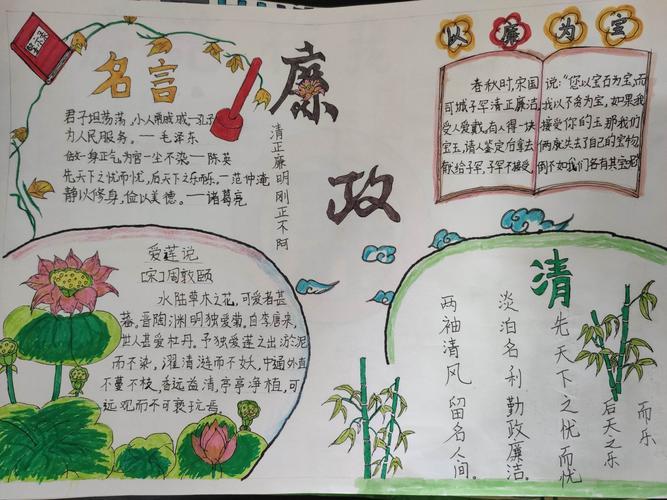 名言
君子坦荡荡，小人常戚戚—孔子
为人民服务。—毛泽东
做一身正气，为官一尘不染—陈英
先天下之忧而忧，后天下之乐而乐。—范仲淹
静以修身，俭以养德。—诸葛亮
廉政
清正廉明刚正不阿
以廉为宝
春秋时，宋国
司城子罕清正廉洁，
受人爱戴。有人得一块
宝玉，请人鉴定后拿去
献给子罕，子罕不接受，
说：“您以宝石为宝，而
我以不贪为宝，如果我
接受你的玉，那我们
俩就失去了自己的宝物，
倒不如我们各有其宝呢
爱莲说
[宋]周敦颐
水陆草木之花，可爱者甚
蕃。晋陶渊明独爱菊，自李唐来，
世人甚爱牡丹。予独爱莲之出淤泥
而不染，濯清涟而不妖，中通外直
不蔓不枝，香远益清，亭亭净植，可
远观而不可亵玩焉。
清
先天下之忧而忧
后天之乐
而乐
淡泊名利，勤政廉洁。
两袖清风，留名人间。